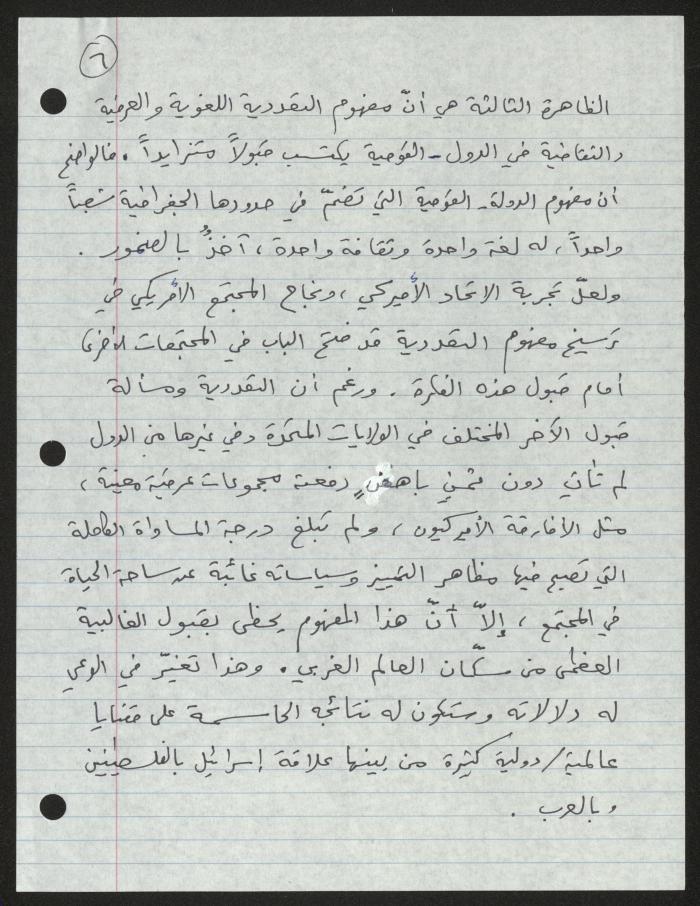 ٦
الظاهرة الثالثة هي أنّ مفهوم التعددية اللغوية والعرقية
والثقافية في الدول - القومية يكتسب قبولاً متزايداً. فالواضح
أن مفهوم الدولة - القومية التي تضمّ في حدودها الجغرافية شعباً
واحداً، له لغة واحدة وثقافة واحدة، آخذٌ بالضمور.
ولعلّ تجربة الاتحاد الأميركي، ونجاح المجتمع الأمريكي في
ترسيخ مفهوم التعددية قد فتح الباب في المجتمعات الأخرى
أمام قبول هذه الفكرة. ورغم أن التعددية ومسألة
قبول الآخر المختلف في الولايات المتحدة وفي غيرها من الدول
لم تأتِ دون ثمنٍ باهضٍ دفعته مجموعات عرقية معينة،
مثل الأفارقة الأميركيون، ولم تبلغ درجة المساواة الكاملة
التي تصبح فيها مظاهر التمييز وسياساته غائبة عن ساحة الحياة
في المجتمع، إلاّ أنّ هذا المفهوم يحظى بقبول الغالبية
العظمى من سكّان العالم الغربي. وهذا تغيّر في الوعي
له دلالاته وستكون له نتائجه الحاسمة على قضايا
عالمية/دولية كثيرة من بينها علاقة إسرائيل بالفلسطينيين
وبالعرب.